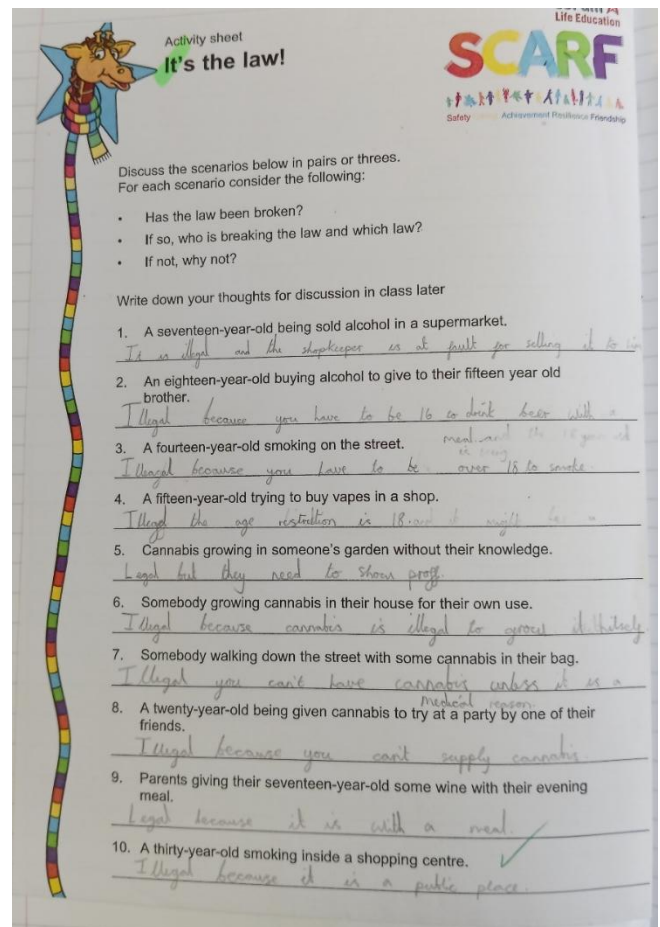 Life Education
Activity sheet
It's the law!
SCARF
Safety Achievement Resilience Friendship
Discuss the scenarios below in pairs or threes.
For each scenario consider the following:
• Has the law been broken?
• If so, who is breaking the law and which law?
• If not, why not?
Write down your thoughts for discussion in class later
1. A seventeen-year-old being sold alcohol in a supermarket.
It is illegal and the shopkeeper is at fault for selling it to him
2. An eighteen-year-old buying alcohol to give to their fifteen year old
brother.
Illegal because you have to be 16 to drink beer with a
meal and the 18 year old
is
3. A fourteen-year-old smoking on the street.
Illegal because you have to be over 18 to smoke.
4. A fifteen-year-old trying to buy vapes in a shop.
Illegal the age restriction is 18. and it might
5. Cannabis growing in someone's garden without their knowledge.
Legal but they need to show proff.
6. Somebody growing cannabis in their house for their own use.
Illegal because cannabis is illegal to grow it
7. Somebody walking down the street with some cannabis in their bag.
Illegal you can't have cannabis unless it is a
medical reason.
8. A twenty-year-old being given cannabis to try at a party by one of their
friends.
Illegal because you can't supply cannabis.
9. Parents giving their seventeen-year-old some wine with their evening
meal.
Legal because it is with a meal.
10. A thirty-year-old smoking inside a shopping centre.
Illegal because it is a public place.